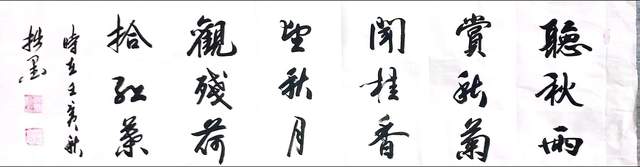 聽秋雨
賞秋菊
聞桂香
望秋月
觀殘荷
拾紅葉
時在壬寅秋
拙墨